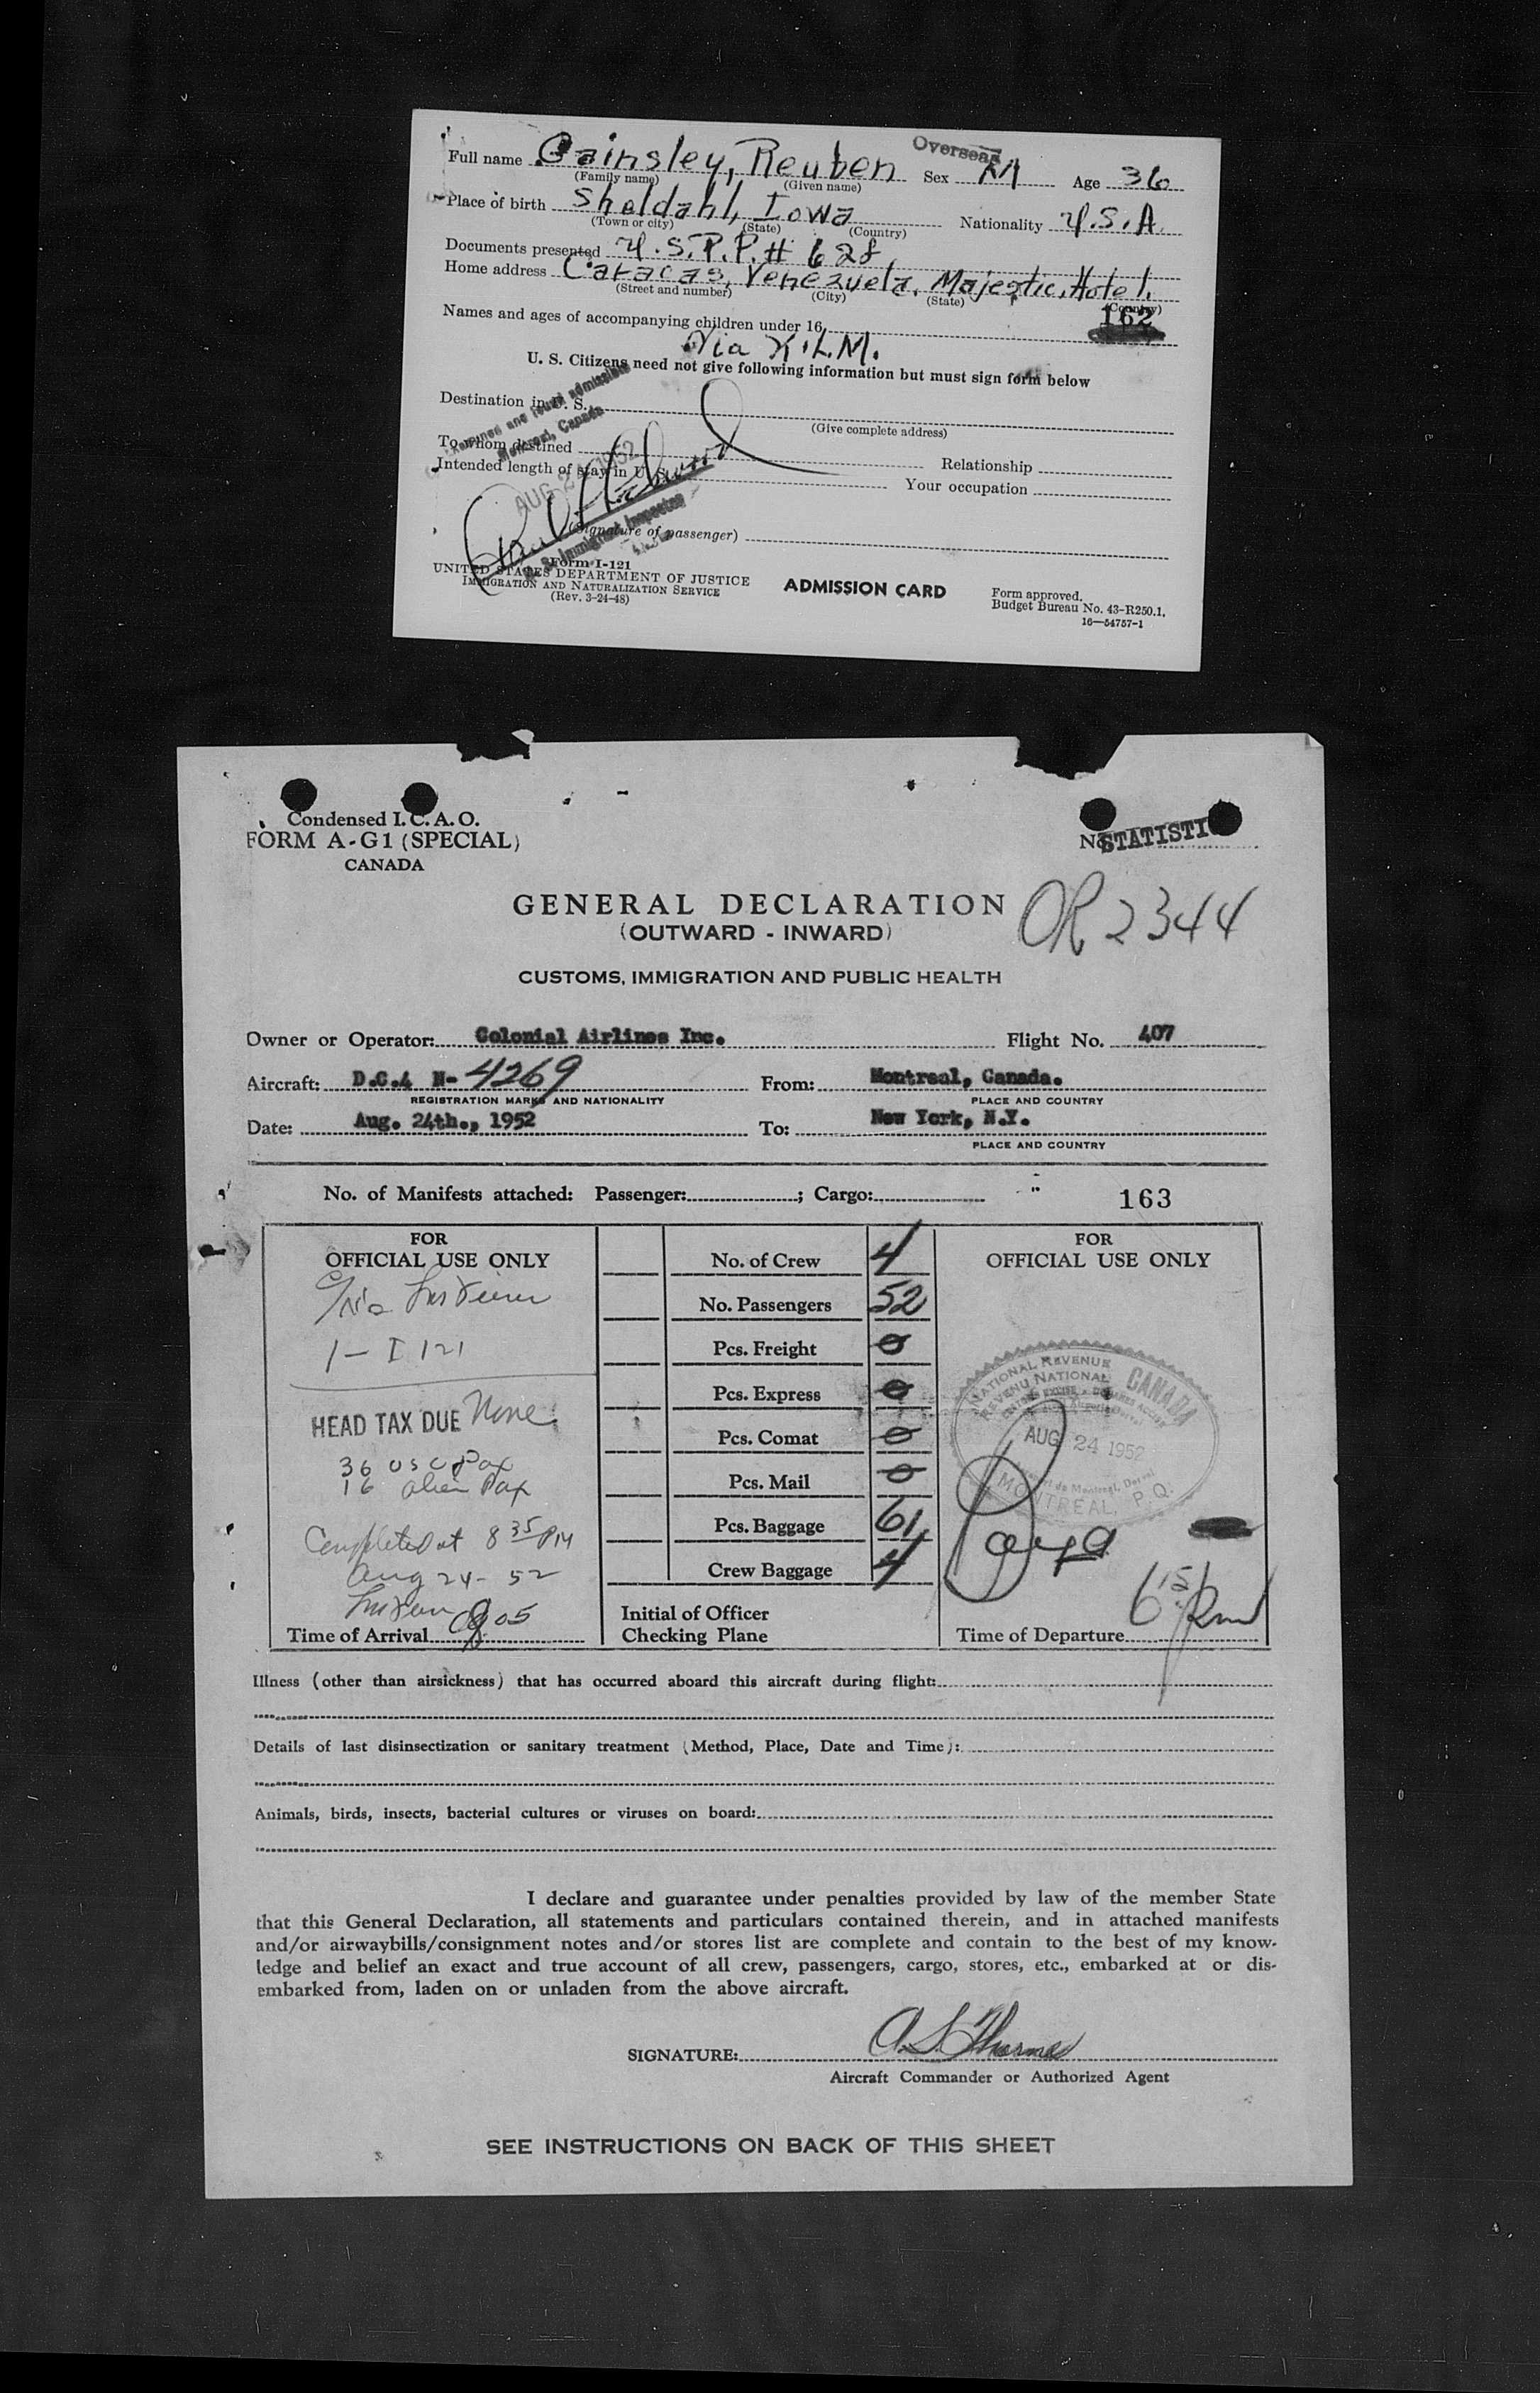 Overseas
Full name Gainsley, Reuben Sex M Age 36
(Family name) (Given name)
Place of birth Sheldahl, Iowa Nationality U.S.A.
(Town or city) (State) (Country)
Documents presented U.S.P.P. # 628
Home address Caracas, Venezuela, Majestic, Hotel.
(Street and number) (City) (State) (Country)
162
Names and ages of accompanying children under 16
Via K.L.M.
U. S. Citizens need not give following information but must sign form below
Destination in U. S.
(Give complete address)
Examined and found admissible
Montreal, Canada
To whom destined Relationship
Intended length of stay in U. S. Your occupation
AUG 24 1952
(Signature of passenger)
Immigrant Inspector
Form I-121
UNITED STATES DEPARTMENT OF JUSTICE
IMMIGRATION AND NATURALIZATION SERVICE
(Rev. 3-24-48)
ADMISSION CARD
Form approved.
Budget Bureau No. 43-R250.1.
16—54757-1
Condensed I. C. A. O.
FORM A-G1 (SPECIAL)
CANADA
No. STATISTI
GENERAL DECLARATION
OR 2344
(OUTWARD - INWARD)
CUSTOMS, IMMIGRATION AND PUBLIC HEALTH
Owner or Operator: Colonial Airlines Inc. Flight No. 407
Aircraft: D.C.4 N- 4269 From: Montreal, Canada.
REGISTRATION MARKS AND NATIONALITY PLACE AND COUNTRY
Date: Aug. 24th., 1952 To: New York, N.Y.
PLACE AND COUNTRY
No. of Manifests attached: Passenger: ; Cargo:
163
FOR
OFFICIAL USE ONLY
1 - I 121
HEAD TAX DUE None
36 USC Pax
16 alien Pax
Completed at 8 35 PM
Aug 24 - 52
Time of Arrival 805
No. of Crew 4
No. Passengers 52
Pcs. Freight 0
Pcs. Express 0
Pcs. Comat 0
Pcs. Mail 0
Pcs. Baggage 61
Crew Baggage 4
Initial of Officer
Checking Plane
FOR
OFFICIAL USE ONLY
NATIONAL REVENUE
REVENU NATIONAL
CANADA
AUG 24 1952
MONTREAL, P.Q.
Time of Departure 6 15
Illness (other than airsickness) that has occurred aboard this aircraft during flight:
Details of last disinsectization or sanitary treatment (Method, Place, Date and Time):
Animals, birds, insects, bacterial cultures or viruses on board:
I declare and guarantee under penalties provided by law of the member State
that this General Declaration, all statements and particulars contained therein, and in attached manifests
and/or airwaybills/consignment notes and/or stores list are complete and contain to the best of my know-
ledge and belief an exact and true account of all crew, passengers, cargo, stores, etc., embarked at or dis-
embarked from, laden on or unladen from the above aircraft.
SIGNATURE: A. S. Thomas
Aircraft Commander or Authorized Agent
SEE INSTRUCTIONS ON BACK OF THIS SHEET